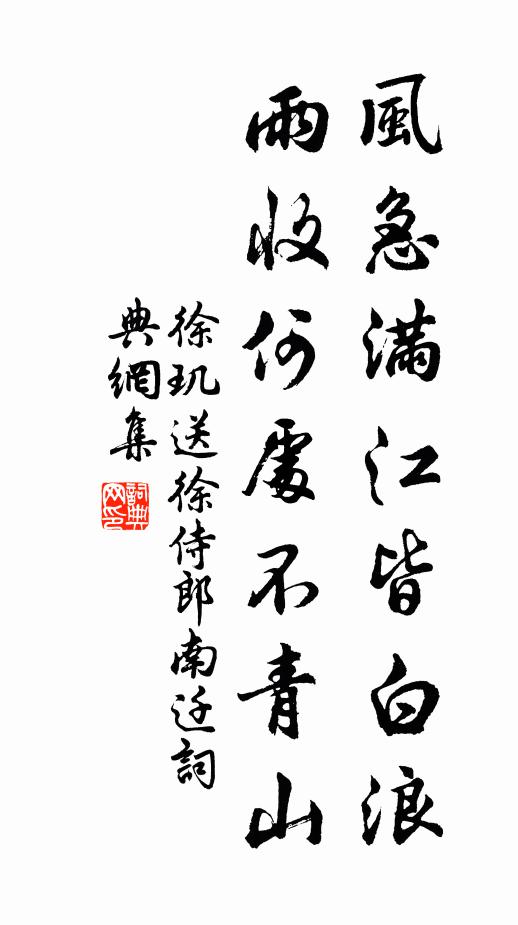 風急滿江皆白浪
雨收何處不青山
徐玑送徐侍郎南迁詞
典網集
詞典
网印